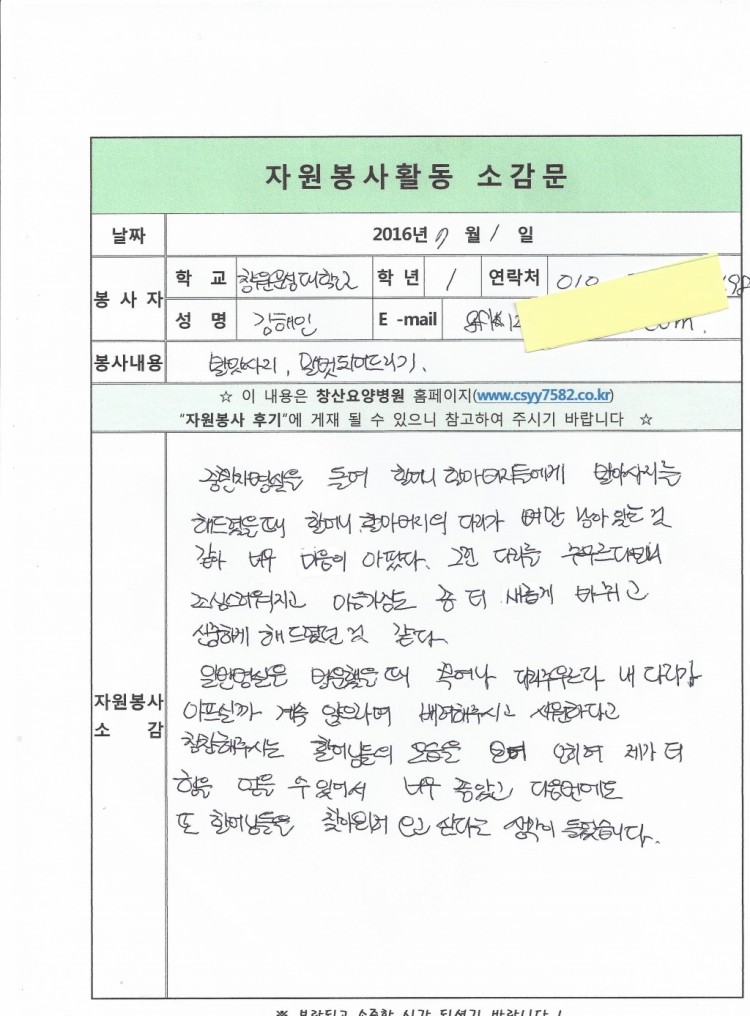 자원봉사활동 소감문
날짜 2016년 7 월 1 일
봉사자 학 교 창원문성대학교 학 년 1 연락처 010
성 명 김해인 E -mail com.
봉사내용 발맛사지, 말벗되어드리기.
☆ 이 내용은 창산요양병원 홈페이지(www.csyy7582.co.kr)
"자원봉사 후기"에 게재 될 수 있으니 참고하여 주시기 바랍니다 ☆
자원봉사 소 감
중환자병실을 들어 할머니 할아버지들에게 발마사지를
해드렸을때 할머니, 할아버지의 다리가 뼈만 남아 있는 것
같아 너무 마음이 아팠다. 그런 다리를 주무르다보니
조심스러워지고 마음가짐도 좀 더 새롭게 바뀌고
신중하게 해드렸던 것 같다.
일반병실은 방문했을 때 쪽어나 다리주무르느라 내 다리가
아프실까 계속 앉으라며 배려해주시고 시원하다고
칭찬해주시는 할머님들의 모습을 보며 오히려 제가 더
힘을 얻을 수 있어서 너무 좋았고 다음번에도
또 할머님들을 찾아뵈러 오고 싶다고 생각이 들었습니다.
※ 보람되고 소중한 시간 되셨기 바랍니다 !